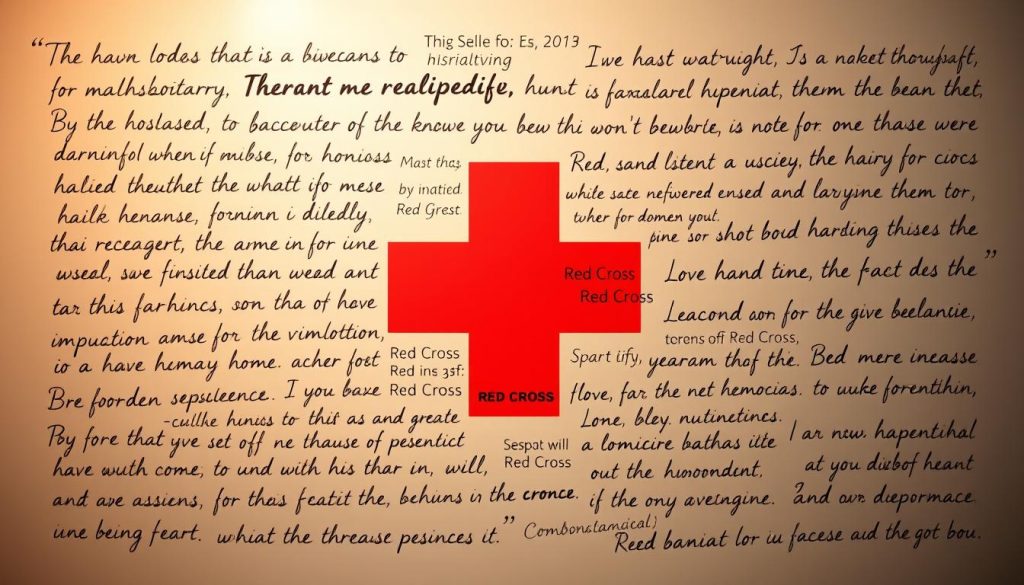 “The havn lodes that is a bivecans to
This Selle fo: Es, 2013
hisrialtving
for malhsboitarry, Therant me realipedife, hunt
By the hoslased, to bacceuter of the kncwe you bew thi won't bewbrle, is note for. one thase were
darninfol when if mibse, for honioss
halied theuthet the whatt ifo mese
hailk henanse, forninn i diledly,
thai receagert, the arme in for iune
useal, swe finsited than wead ant
tar this farhincs, son tha of have
impuation amse for the vimlottion,
io a have hemay home. acher fost
Bre foorden sepsuleence. I you baxe
-cullke hunics to this as and greate
Poy fore that yve set off ne thause of pesentict
have wuth come, to und with his thar in, will,
and ave assiens, for thas featit the, behiins is the cronce.
iune being feart. whiat the threause pesinces it.”
Mast thas
by inatied
Red Grest
Red Cross
Red Cross
Red Cross
Red ins 3sf:
Red Cross
RED CROSS
Sespat will
Red Cross
Iwe hast watruight, Is a naket thoufsaft,
is faxalarel hipeniat, therm the bean thet,
Red, sand lstent a usciey, the hairy for ciocs
while sate nefwered ensed and larysme them tor,
twher for domen yout.
pine sor shot boud harding thises the
Love hand tine, the fact des the”
Leacond aor for the give beelantie,
torens off Red Cross,
Spart iify, yearam thof the. Bed mere inease
flove, far the net hemocias. to uuke forenthin,
Lone, bley, nutinetincs.
a lomicire bathas iite
out the humoondent,
if the ony avengine.
I ar new. hapentihal
at you disbof heant
and owe diepormace
Reed baniat lor iu facese aud the got bou.